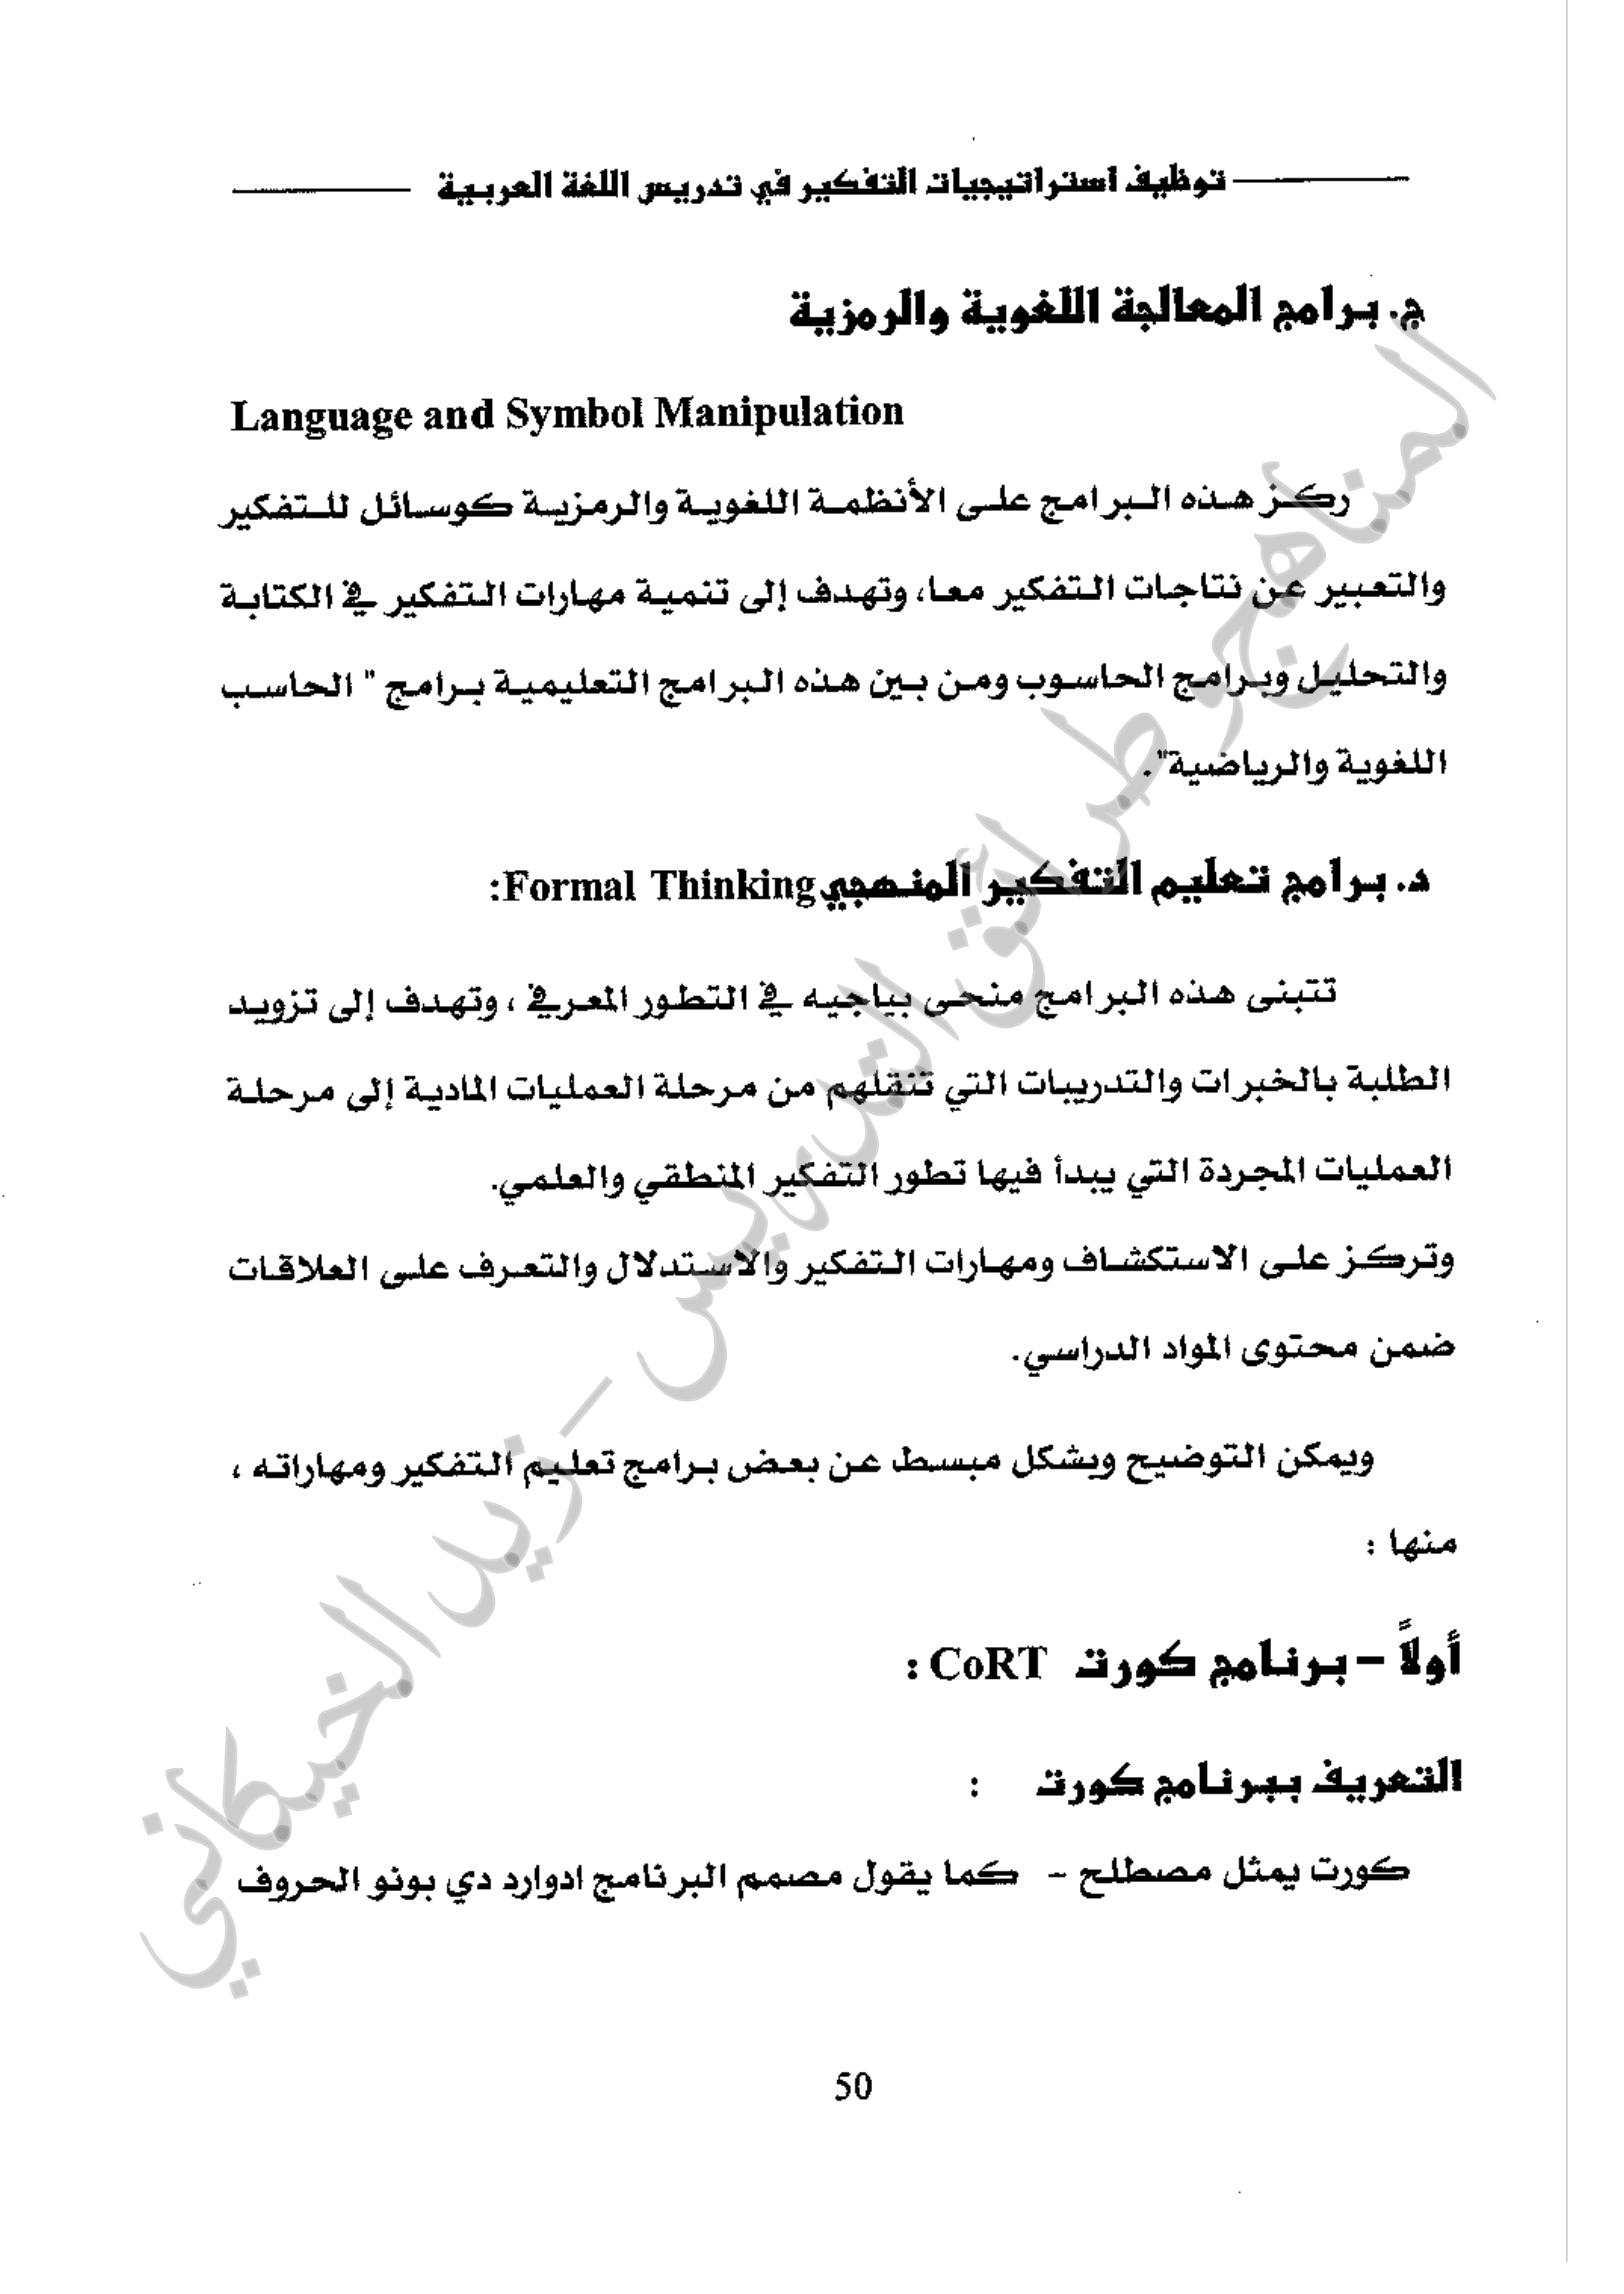 توظيف استراتيجيات التفكير في تدريس اللغة العربية
ج. برامج المعالجة اللغوية والرمزية
Language and Symbol Manipulation
ركز هذه البرامج على الأنظمة اللغوية والرمزية كوسائل للتفكير
والتعبير عن نتاجات التفكير معا، وتهدف إلى تنمية مهارات التفكير في الكتابة
والتحليل وبرامج الحاسوب ومن بين هذه البرامج التعليمية برامج " الحاسب
اللغوية والرياضية".
د. برامج تعليم التفكير المنهجي Formal Thinking:
تتبنى هذه البرامج منحى بياجيه في التطور المعرفي ، وتهدف إلى تزويد
الطلبة بالخبرات والتدريبات التي تنقلهم من مرحلة العمليات المادية إلى مرحلة
العمليات المجردة التي يبدأ فيها تطور التفكير المنطقي والعلمي.
وتركز على الاستكشاف ومهارات التفكير والاستدلال والتعرف على العلاقات
ضمن محتوى المواد الدراسي.
ويمكن التوضيح وبشكل مبسط عن بعض برامج تعليم التفكير ومهاراته ،
منها :
أولاً – برنامج كورت CoRT :
التعريف ببرنامج كورت :
كورت يمثل مصطلح - كما يقول مصمم البرنامج ادوارد دي بونو الحروف
50
المناهج وطرائق التدريس - زيد الخيكاني